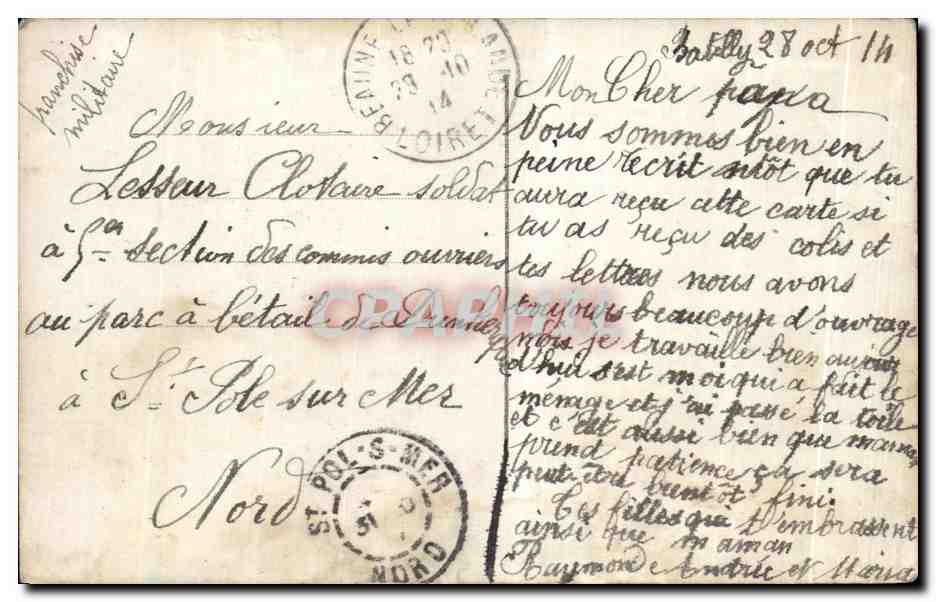 franchise
militaire
Monsieur
Lesseur Clotaire soldat
à section des commis ouvriers
au parc à bétail de
à St Pole sur Mer
Nord
BEAUNE LOIRET
18 20
29 10
14
ST POL-S-MER
NORD
28 oct 14
Mon Cher papa
Nous sommes bien en
peine récrit ntôt que tu
aura reçu cette carte si
tu as reçu des colis et
tes lettres nous avons
toujours beaucoup d'ouvrage
mois je travaille bien aujour
d'hui s'est moi qui a fait le
ménage et j'ai passé la toile
et c'est aussi bien que maman
prend patience ça sera
peut-être bientôt fini.
Tes filles qui t'embrassent
ainsi que maman
Raymonde Andrée et Maria
CPARAMA